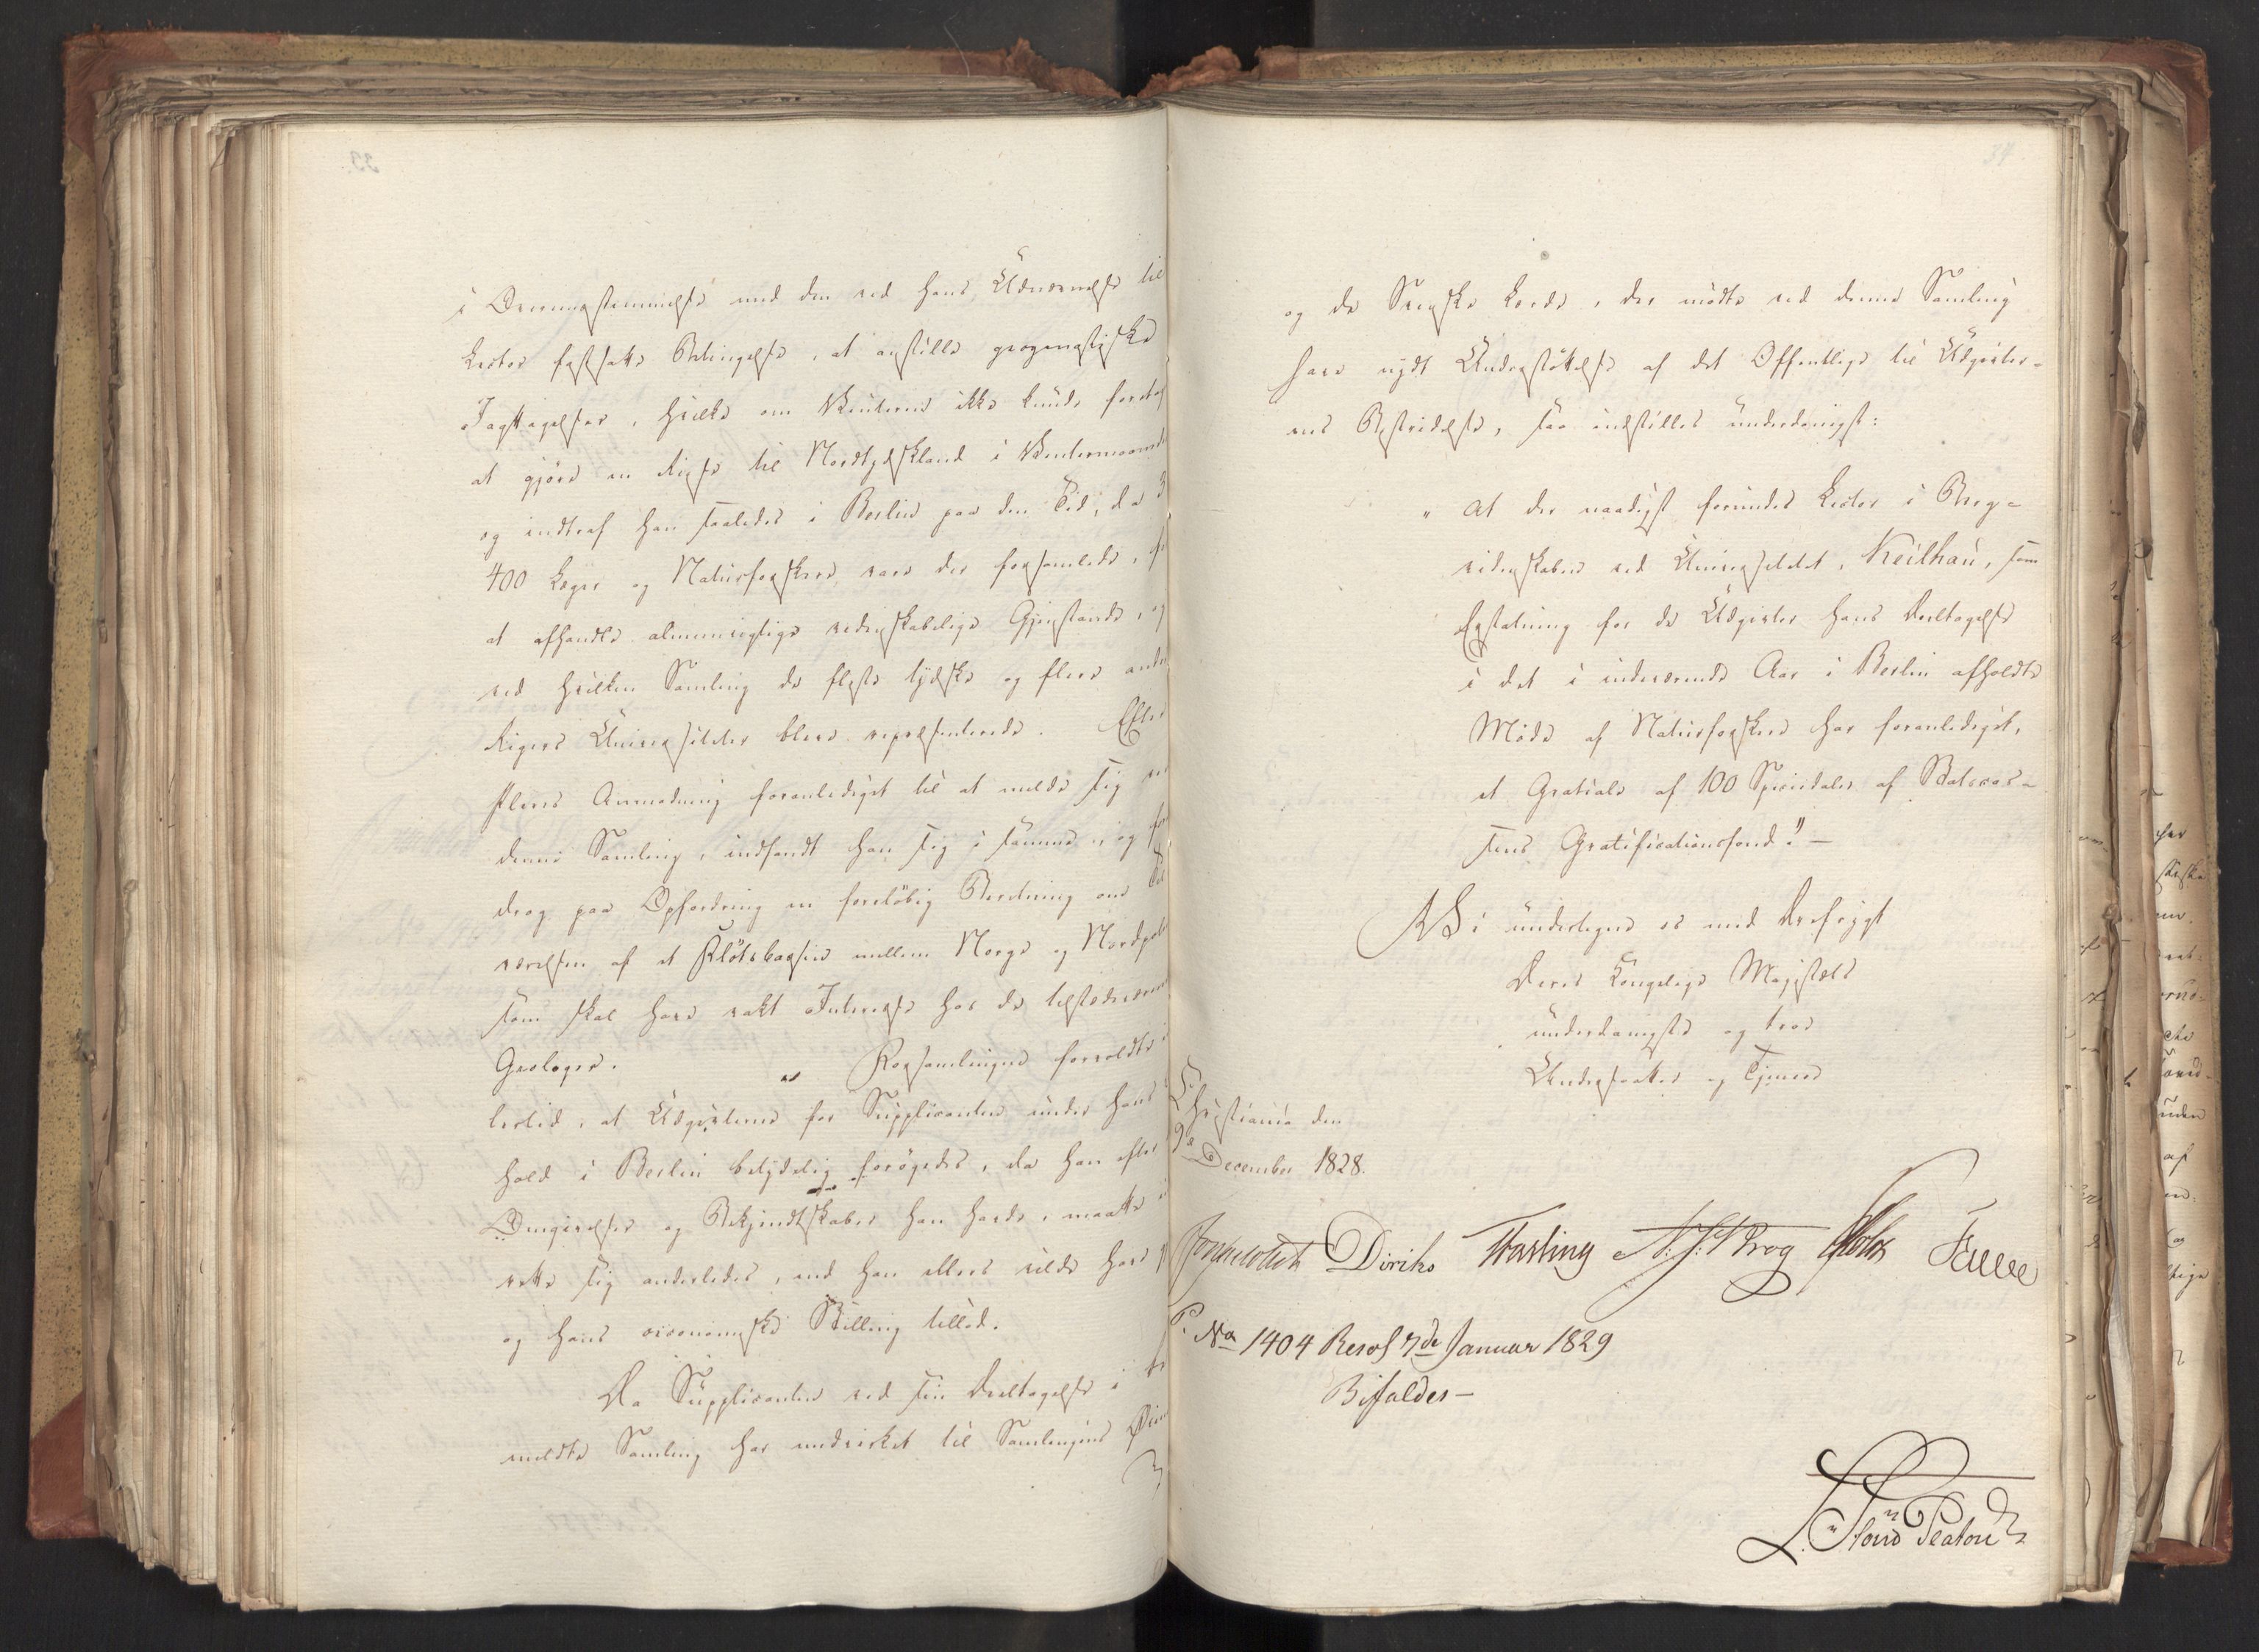 i Overensstemmelse med den ved hans Udnævnelse til
Lector fastsatte Betingelse, at anstille geognostiske
Iagttagelser, hvilke om Vinteren ikke kunde foretag
at gjøre en Reise til Nordtydskland i Vintermaaned
og indtraf han saaledes i Berlin paa den Tid, da
400 Læger og Naturforskere vare der forsamlede, f
at afhandle almeenvigtige videnskabelige Gjenstande, og
ved hvilken Samling de fleste tydske og flere andre
Rigers Universiteter bleve repræsenterede. Efter
Fleres Anmodning foranlediget til at melde sig ved
denne Samling, indfandt han sig i samme, og for
drog paa Opfordring en foreløbig Beretning om Til
værelsen af et Flötsbassin mellem Norge og Nordpolen
som skal have vakt Interesse hos de tilstedeværende
Geologer. Forsamlingen forvoldte i
lertid, at Udgivterne for Supplicanten under hans
hold i Berlin betydelig forøgedes, da han efter
Omgivelser og Bekjendtskaber han havde, maatte
rette sig anderledes, end han ellers vilde have
og hans oeconomiske Stilling tillod.
Da Supplicanten ved sin Deeltagelse i
meldte Samling har medvirket til Samlingens Øiem
33.
34
og de Svenske Lærde, der mødte ved denne Samling
have nydt Understøttelse af det Offentlige til Udgivter-
nes Bestridelse, saa indstilles underdanigst:
" At der naadigst forundes Lector i Berg-
videnskaben ved Universitetet, Keilhau, som
Erstatning for de Udgivter hans Deeltagelse
i det i indeværende Aar i Berlin afholdte
Møde af Naturforskere har foranlediget,
et Gratiale af 100 Speciedaler af Statscas-
sens Gratificationsfond". —
Vi undertegne os med Ærefrygt
Deres Kongelige Majestæts
underdanigste og troe
Undersaatter og Tjenere
Christiania den
9de December 1828.
Diriks Fasting N. J. Krog Holst Falbe
P. No 1404 Resol 7de Januar 1829
Bifaldes —
Platou